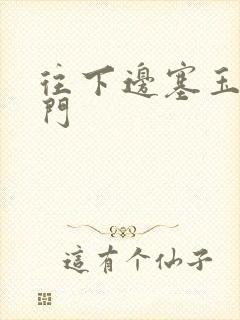 往下邊塞玉
門
這有个仙子